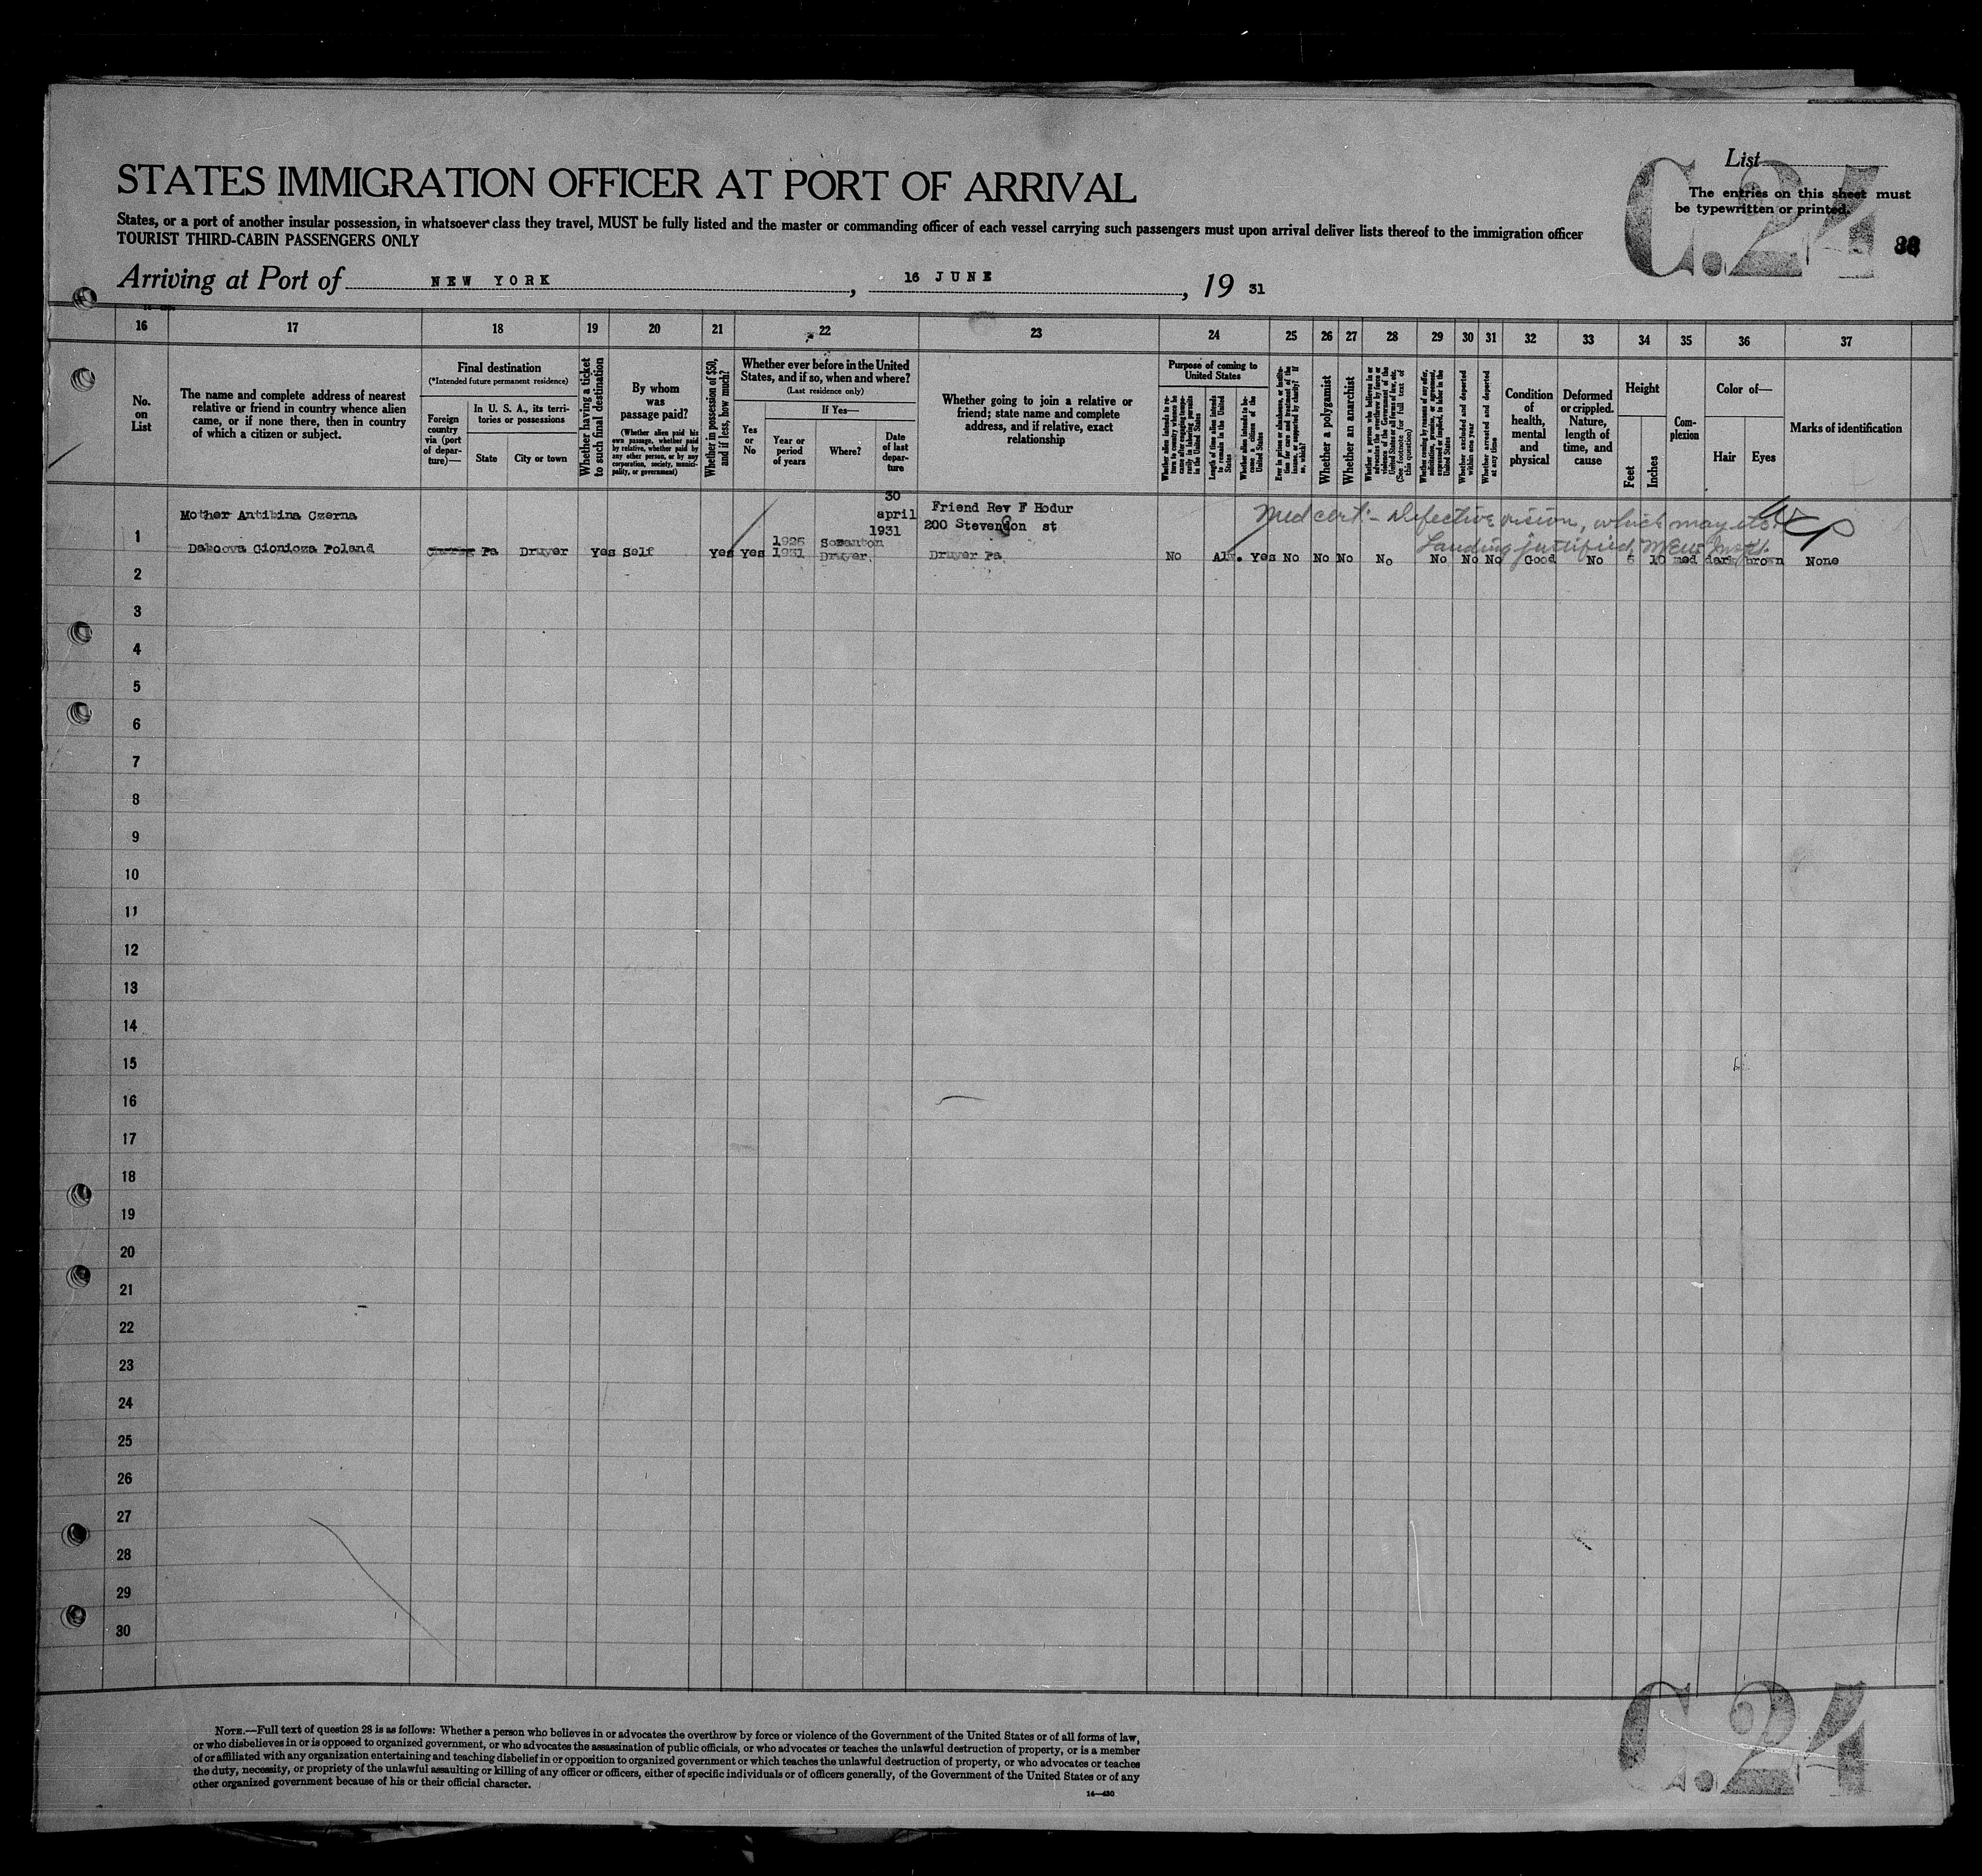 List
C.24
The entries on this sheet must
be typewritten or printed.
STATES IMMIGRATION OFFICER AT PORT OF ARRIVAL
States, or a port of another insular possession, in whatsoever class they travel, MUST be fully listed and the master or commanding officer of each vessel carrying such passengers must upon arrival deliver lists thereof to the immigration officer
TOURIST THIRD-CABIN PASSENGERS ONLY
Arriving at Port of NEW YORK, 16 JUNE, 19 31
16 17 18 19 20 21 22 23 24 25 26 27 28 29 30 31 32 33 34 35 36 37
No.
on
List
The name and complete address of nearest
relative or friend in country whence alien
came, or if none there, then in country
of which a citizen or subject.
Final destination
(*Intended future permanent residence)
Foreign
country
via (port
of depar-
ture)—
In U. S. A., its terri-
tories or possessions
State
City or town
Whether having a ticket
to such final destination
By whom
was
passage paid?
(Whether alien paid his
own passage, whether paid
by relative, whether paid by
any other person, or by any
corporation, society, munici-
pality, or government)
Whether in possession of $50,
and if less, how much?
Whether ever before in the United
States, and if so, when and where?
(Last residence only)
Yes
or
No
If Yes—
Year or
period
of years
Where?
Date
of last
depar-
ture
Whether going to join a relative or
friend; state name and complete
address, and if relative, exact
relationship
Purpose of coming to
United States
Whether alien intends to re-
turn to country whence he
came after engaging tempo-
rarily in laboring pursuits
in the United States
Length of time alien intends
to remain in the United
States
Whether alien intends to be-
come a citizen of the
United States
Ever in prison or almshouse, or institu-
tion for care and treatment of the
insane, or supported by charity? If
so, which?
Whether a polygamist
Whether an anarchist
Whether a person who believes in or
advocates the overthrow by force or
violence of the Government of the
United States or all forms of law, etc.
(See footnote for full text of
this question)
Whether coming by reasons of any offer,
solicitation, promise, or agreement,
expressed or implied, to labor in the
United States
Whether excluded and deported
within one year
Whether arrested and deported
at any time
Condition
of
health,
mental
and
physical
Deformed
or crippled.
Nature,
length of
time, and
cause
Height
Feet
Inches
Com-
plexion
Color of—
Hair
Eyes
Marks of identification
Mother Antibina Czerna
30
april
1931
Friend Rev F Hodur
200 Stevenson st
Med cert:- Defective vision, which may
Landing justified
1
Poland
Pa Druyer Yes Self Yes Yes
1925
1931 Druyer
Druyer Pa
No Alw. Yes No No No No No No No Good No 5 10 med dark brown None
2
3
4
5
6
7
8
9
10
11
12
13
14
15
16
17
18
19
20
21
22
23
24
25
26
27
28
29
30
NOTE.—Full text of question 28 is as follows: Whether a person who believes in or advocates the overthrow by force or violence of the Government of the United States or of all forms of law,
or who disbelieves in or is opposed to organized government, or who advocates the assassination of public officials, or who advocates or teaches the unlawful destruction of property, or is a member
of or affiliated with any organization entertaining and teaching disbelief in or opposition to organized government or which teaches the unlawful destruction of property, or who advocates or teaches
the duty, necessity, or propriety of the unlawful assaulting or killing of any officer or officers, either of specific individuals or of officers generally, of the Government of the United States or of any
other organized government because of his or their official character.
14—430
C.24